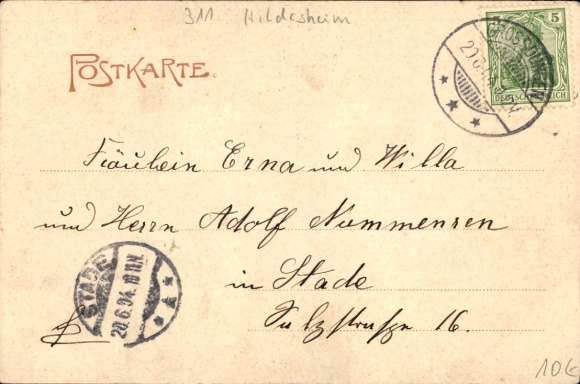 311 Hildesheim
POSTKARTE.
5
DEUTSCHES REICH
20.6.
Fräulein Erna und Willa
und Herrn Adolf Nummensen
in Stade
Salzstraße 16.
STADE
20.6.04. 10 11 N.
10€